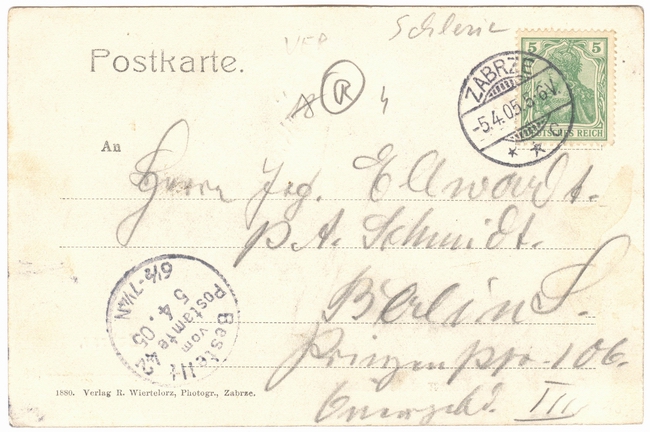 Schlesie
Postkarte.
5 5
DEUTSCHES REICH
ZABRZE
-5.4.05.5-6V.
* * c
R 4
An
Herrn Jog. Ellwardt.
p. A. Schmidt.
Berlin S.
Prinzenstr. 106.
Quergebd. III
Bestellt
vom
Postamte 42
5 4.05
6½-7¼N
1880. Verlag R. Wiertelorz, Photogr., Zabrze.